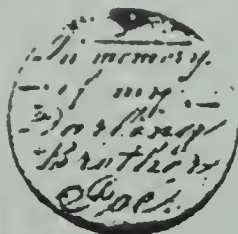 In memory
of my
Darling
Brother